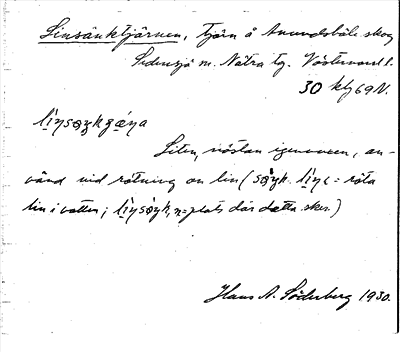 Linsänktjärnen, tjärn å Amundsböle skog
Sidensjö sn. Nätra tg. Västernorrl. l.
30 kbg 69N.
Liten, nästan igenvuxen, an-
vänd vid rötning av lin (= röta
lin i vatten; n = plats där detta sker.)
Hans A. Söderberg 1930.